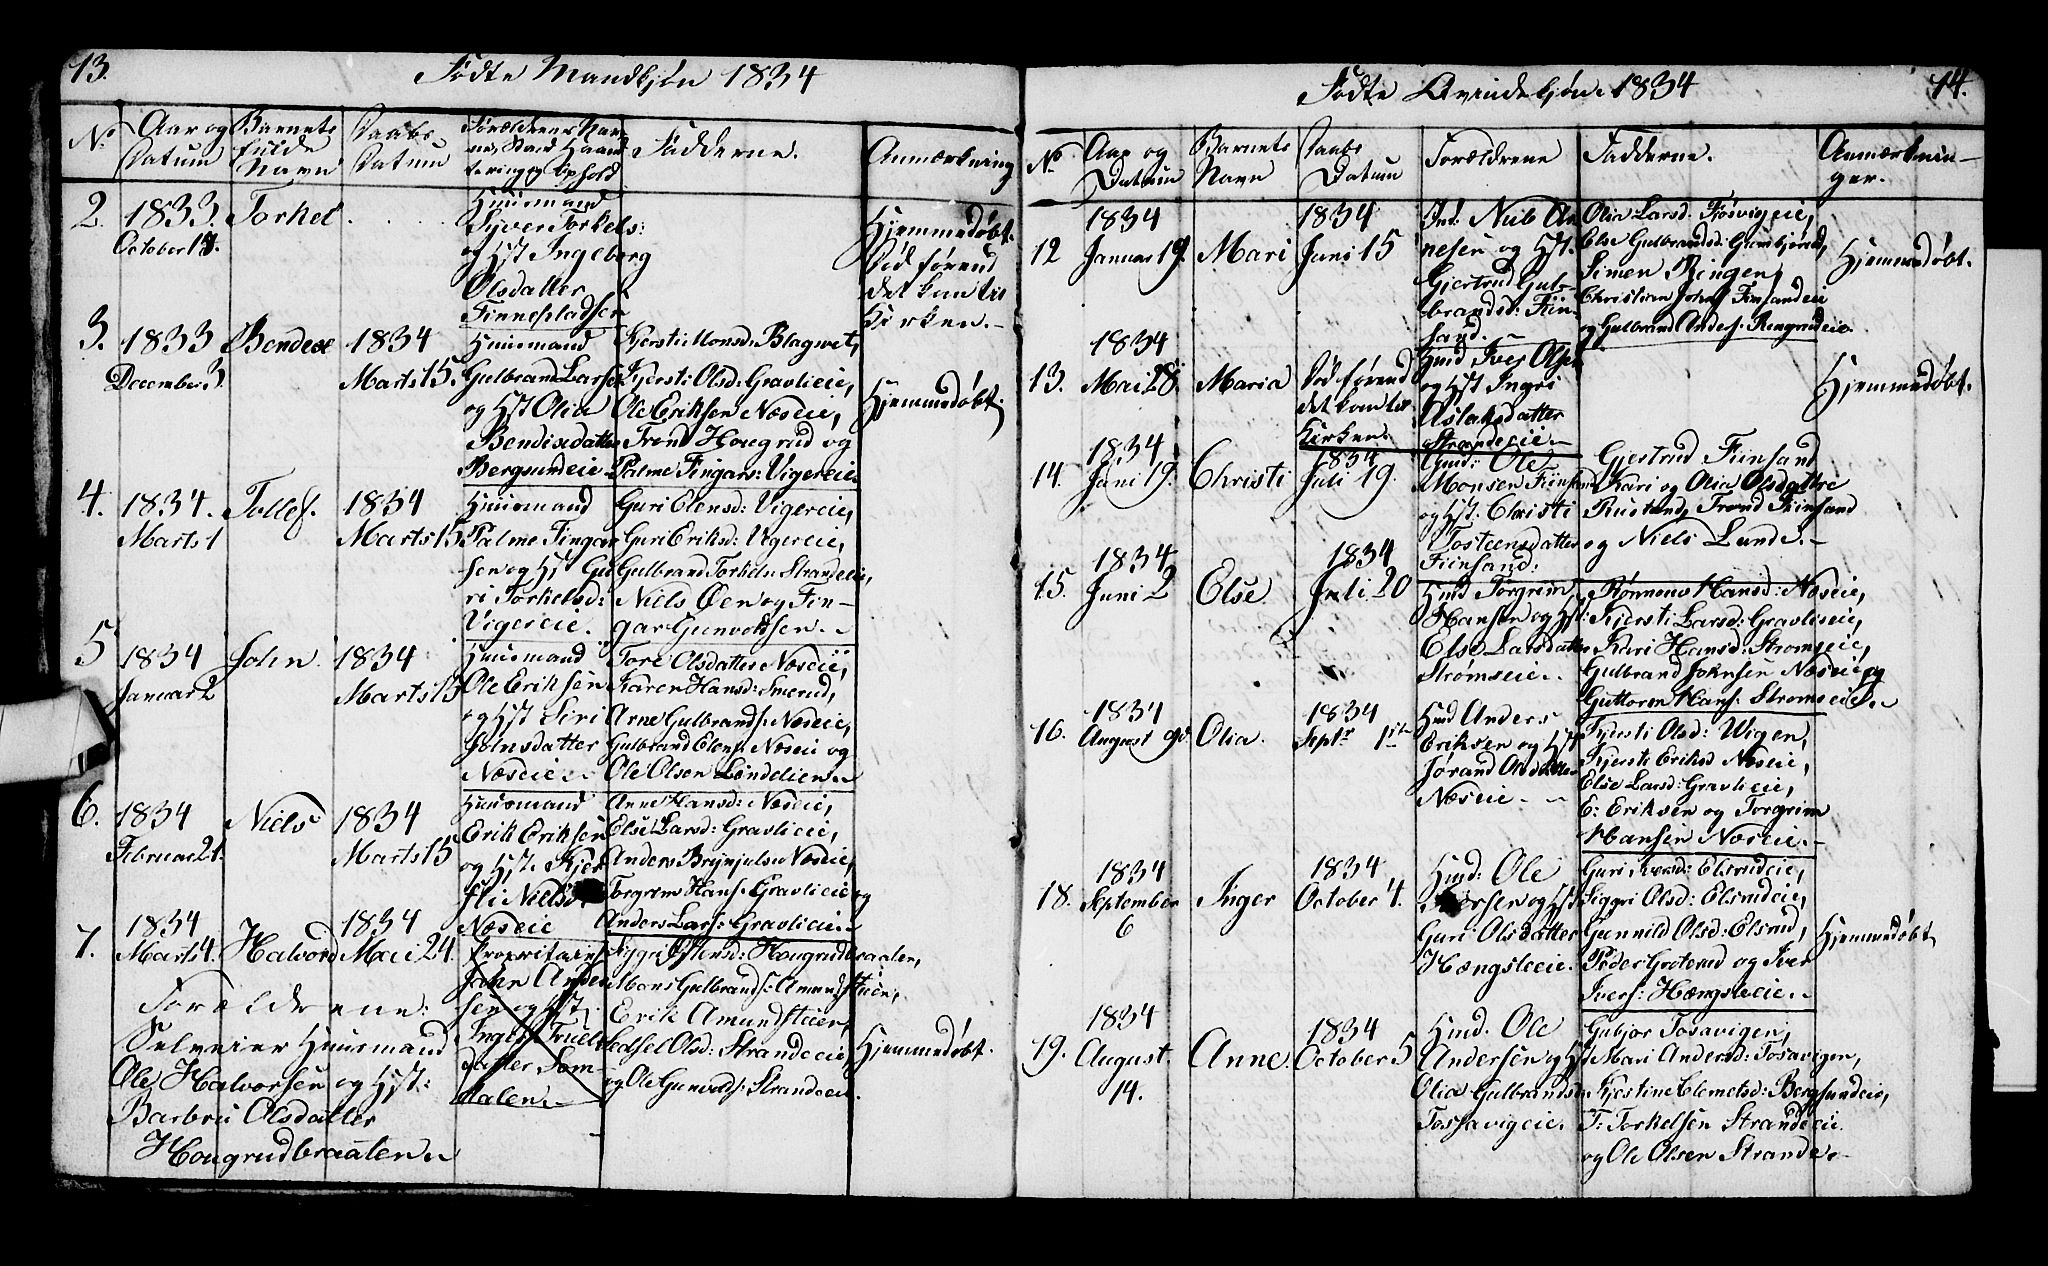 13.
Födte Mandkjön 1834
No
Aar og
Datum
Barnets
fulde
Navn
Daabs-
Datum
Forældrenes Nav-
ne, Stand Haand-
tering og Ophold
Fadderne.
Anmærkning
2.
1833.
October 19.
Torkel
Huusmand
Syver Torkels:
og Hst Ingeborg
Olsdatter
Finnepladsen
Hjemmedøbt.
Död førend
det kom til
Kirken.
3.
1833
December 3.
Bendixe
1834
Marts 15.
Huusmand
Gulbrand Larsen
og Hst Olia
Bendixdatter
Bergsundeie
Kjersti Monsd: Blagvet,
Kjersti Olsd: Gravlieie,
Ole Eriksen Næseie,
Trond Hougrud og
Palme Fingars: Vigereie.
Hjemmedøbt.
4.
1834.
Marts 1
Tollef.
1834
Marts 15
Huusmand
Palme Fingar
sen og Hst Gu
ri Torkelsd:
Vigereie.
Guri Elensd: Vigereie,
Guri Eriksd: Vigereie,
Gulbrand Torkels: Strandeeie,
Niels Öen og Fin-
gar Gunvoldsen.
5
1834
Januar 2
John.
1834
Marts 15
Huusmand
Ole Eriksen
og Hst Siri
Johnsdatter
Næseie.
Tore Olsdatter Næseie,
Karen Hansd: Smerud,
Arne Gulbrands: Næseie,
Gulbrand Elens: Næseie og
Ole Olsen Londelien.
6.
1834
Februar 21.
Niels
1834
Marts 15
Huusmand
Erik Eriksen
og Hst. Kjer
sti Nielsd.
Næseie
Anne Hansd: Næseie,
Else Larsd: Gravlieie,
Anders Brynjulsen Næseie,
Torgrim Hans: Gravlieie og
Anders Lars: Gravlieie.
7.
1834
Marts 4.
Halvord
1834
Mai 24.
Proprietair
John Ander
sen og Hst
Inger Truels
datter Som-
dalen.
Siggri Hougrudbraaten,
Mons Gulbrands: Amundstuen,
Erik Amundstuen,
Sidsel Olsd: Strandeeie
og Ole Gunvolds: Strandeeie.
Hjemmedøbt.
Forældrene:
Selveier Huusmand
Ole Halvorsen og Hst:
Barbru Olsdatter
Hougrudbraaten
14.
Födte Qvindekjön 1834
No
Aar og
Datum
Barnets
Navn
Daabs
Datum
Forældrene
Fadderne.
Anmærknin-
ger.
12
1834
Januar 19.
Mari
1834
Juni 15
Ind. Nub Ar
nesen og Hst.
Gjertrud Gul-
brandsd: Fiin-
sand.
Olia Larsd: Fösvigeie,
Else Gulbrandsd: Gunbjörud,
Simen Ringen,
Christian Johns: Finsandeie
og Gulbrand Anders: Ringrudeie
Hjemmedøbt.
13.
1834
Mai 28.
Maria
Död førend
det kom til
Kirken.
Hmd Iver Olsen
og Hst Ingri
Aslaksdatter
Strandeeie.
Hjemmedøbt.
14.
1834
Juni 19.
Christi
1834
Juli 19.
Gmd: Ole
Monsen Fiinsand
og Hst: Christi
Tosteensdatter
Fiinsand.
Gjertrud Fiinsand
Kari og Olia Olsdattre
Rustand, Trond Fiinsand
og Niels Lunde.
15.
1834
Juni 2
Else.
1834
Juli 20
Hmd Torgrim
Hansen og Hst:
Else Larsdatter
Strömseie.
Rönnous Hansd: Næseie,
Kjersti Larsd: Gravlieeie,
Kari Hansd: Stromseie,
Gulbrand Johnsen Næseie og
Guttorm Hans: Strömseie.
16.
1834
August 90
Olia.
1834
Septr 1ste
Hmd Anders
Eriksen og Hst
Jörand Olsdatter
Næseie
Kjersti Olsd: Wigen,
Kjersti Eriksd Næseie,
Else Larsd: Gravlieie,
E: Eriksen og Torgrim
Hansen Næseie.
18.
1834
September
6
Inger
1834
October 4.
Hmd: Ole
Iversen og Hst
Guri Olsdatter
Hængsleeie.
Guri Iversd: Elsrudeie,
Siggri Olsd: Elsrudeie,
Gunnild Olsd: Elsrud,
Peder Groterud og Iver
Ivers: Hængsleeie.
Hjemmedøbt
19.
1834
August.
14.
Anne.
1834
October 5
Hmd. Ole
Andersen og Hst
Olia Gulbrandsd
Tossavigeie.
Gubjor Tosavigen,
Mari Andersd: Tosavigen,
Kjerstine Clemetsd: Bergsundeie,
T: Torkelsen Strandeeie
og Ole Olsen Strande.